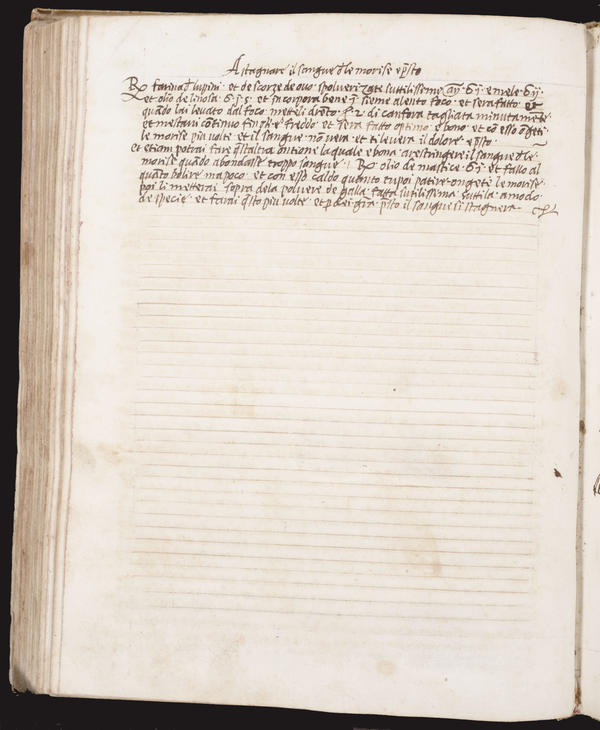 A stagnare il sangue dle morise epsto
℞ farina d lupini · et de scorze de ovo spolverizate suttilissime an̄ · ℥ · j · e mele · ℥ ij ·
et olio de linosa · ℥ · j · s · et incorpora bene īsieme a lento foco · et sera fatto et
quādo lai levato dal foco · metteli drēto · di canfora tagliata minutamēte
et mestari cōtinuo fin ch' e freddo · et sera fatto optimo e bono · et cō esso ōgeti
le morise piu volte · et il sangue nō vera · et ti levera il dolore · epsto ·
et etiam potrai fare q̄staltra ontione la quale e bona · a restringere il sangue dle
morise quādo abondasse troppo sangue · ℞ olio de mastice · ℥ · ij · et fallo al
quāto bolire ma poco · et con esso caldo quanto tu poi patire ongete le morise
poi li metterai sopra dela polvere de galla fatta suttilissima suttila · a modo
de specie · et farai q̄sto piu volte · et p psto il sangue si stagnera